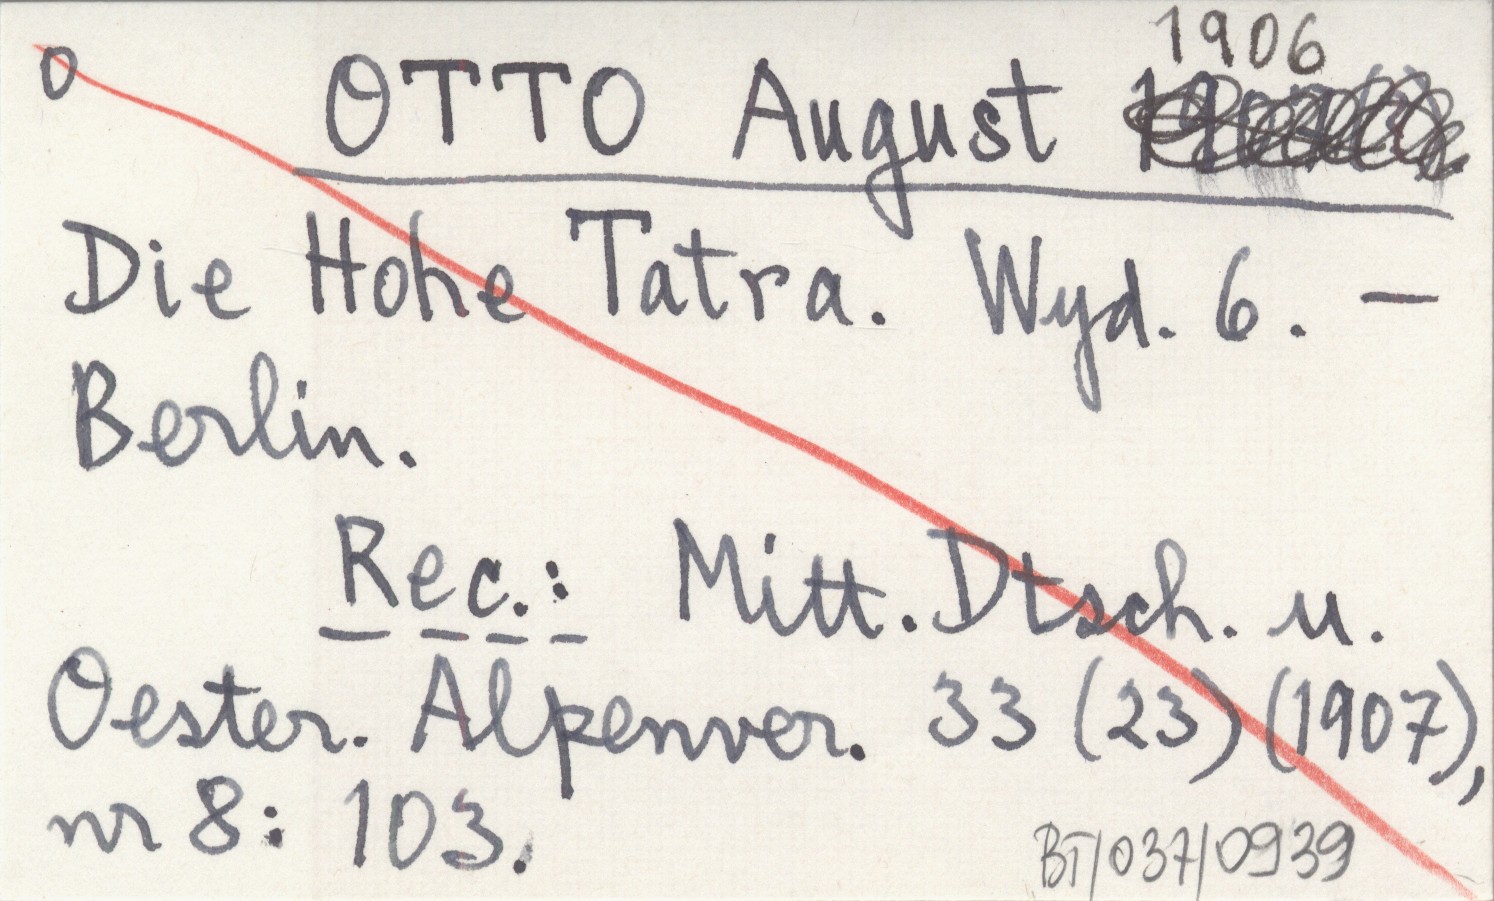 1906
O OTTO August
Die Hohe Tatra. Wyd. 6. —
Berlin.
Rec.: Mitt. Dtsch. u.
Oester. Alpenver. 33 (23) (1907),
nr 8: 103.
BT/037/0939